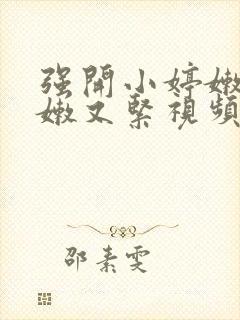 强開小婷嫩
嫩又緊視頻
邵素雯